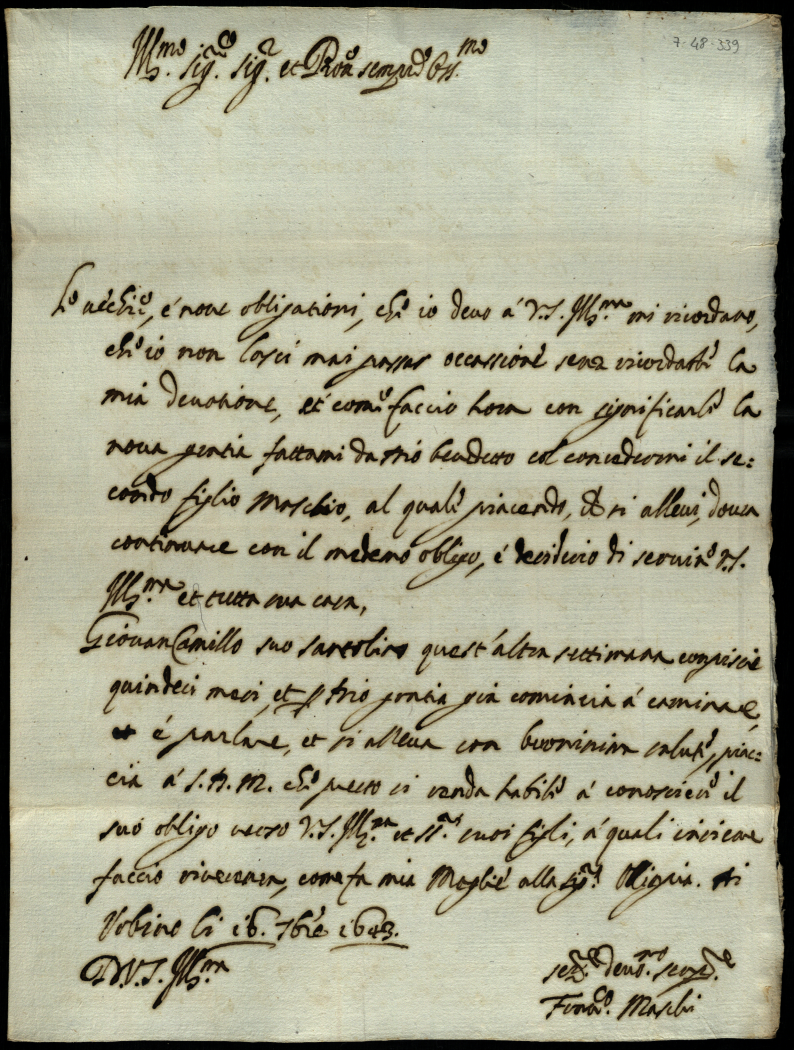 7-48-339
Ill.mo Sig.re Sig.r et Pron sempre Oss.mo
Le vechie, é nove obligationi, che io devo á V.S. Ill.ma mi ricordano,
che io non lasci mai passar occassione senza ricordarli la
mia devotione, et come faccio hora con significarle la
nova gratia fattami da Dio benedetto col concedermi il se=
condo figlio Maschio, al quale piacendo, che si allevi, dovrà
continuare con il medemo obligo, é desiderio di servire V.S.
Ill.ma et tutta sua casa,
Giovan Camillo suo santolino quest'altra settimana compisce
quindeci mesi, et p Dio gratia già comincia á caminare,
é parlare, et si alleva con buonissima salute, piac=
cia á S.D.M. che presto si renda habile á conoscere il
suo obligo verso V.S. Ill.ma et SS.ri suoi figli, á quali insieme
faccio riverenza, come fa mia Moglie alla Sig.ra Oligina. Di
Urbino li 16. 7bre 1643.
D.V.S. Ill.ma
Ser.re devo.mo
Franc.o Maschi